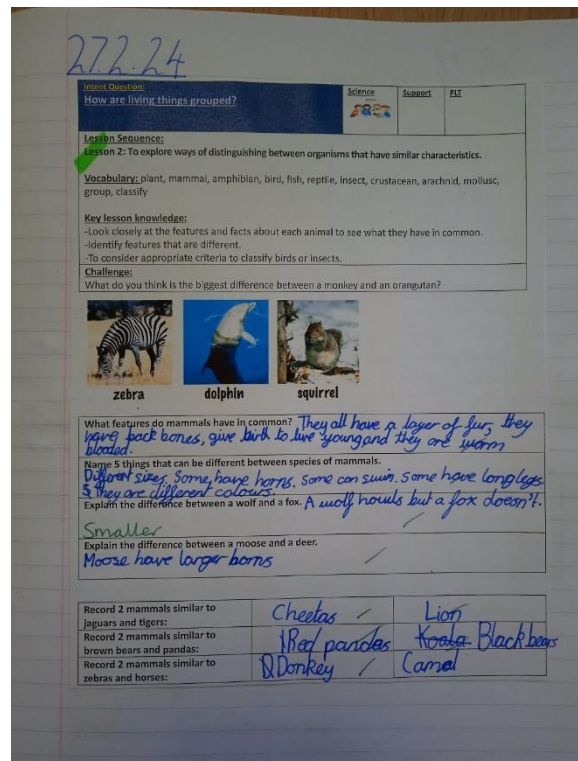 27.2.24
Intent Question:
How are living things grouped?
Science
Support
PLT
Lesson Sequence:
Lesson 2: To explore ways of distinguishing between organisms that have similar characteristics.
Vocabulary: plant, mammal, amphibian, bird, fish, reptile, insect, crustacean, arachnid, mollusc,
group, classify
Key lesson knowledge:
-Look closely at the features and facts about each animal to see what they have in common.
-Identify features that are different.
-To consider appropriate criteria to classify birds or insects.
Challenge:
What do you think is the biggest difference between a monkey and an orangutan?
zebra dolphin squirrel
What features do mammals have in common? They all have a layer of fur, they
have back bones, give birth to live young and they are warm
bloaded.
Name 5 things that can be different between species of mammals.
Different sizes. Some have horns. Some can swim. Some have long legs
5 they are different colours.
Explain the difference between a wolf and a fox. A wolf howls but a fox doesn't.
Smaller
Explain the difference between a moose and a deer.
Moose have larger horns
Record 2 mammals similar to
jaguars and tigers:
Cheetas
Lion
Record 2 mammals similar to
brown bears and pandas:
Red pandas
Koala Black bears
Record 2 mammals similar to
zebras and horses:
Donkey
Camel